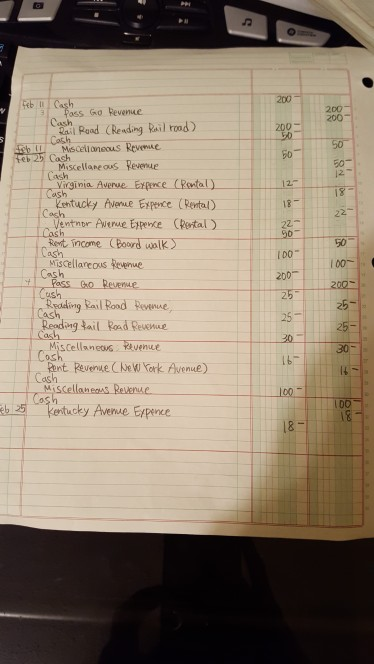 Feb 11 Cash 200-
Pass Go Revenue 200-
Cash 200-
Rail Road (Reading Rail road) 200-
Cash 50-
Feb 11 Miscellaneous Revenue 50
Feb 25 Cash 50-
Miscellaneous Revenue 50-
Cash 12-
Virginia Avenue Expence (Rental) 12-
Cash 18-
Kentucky Avenue Expence (Rental) 18-
Cash 22-
Ventnor Avenue Expence (Rental) 22-
Cash 50-
Rent income (Board walk) 50-
Cash 100-
Miscellaneous Revenue 100-
Cash 200-
Pass Go Revenue 200-
Cash 25-
Reading Rail Road Revenue, 25-
Cash 25-
Reading Rail Road Revenue 25-
Cash 30
Miscellaneous Revenue 30-
Cash 16-
Rent Revenue (New York Avenue) 16-
Cash 100-
Miscellaneous Revenue 100-
Cash 18-
Feb 25 Kentucky Avenue Expence 18-